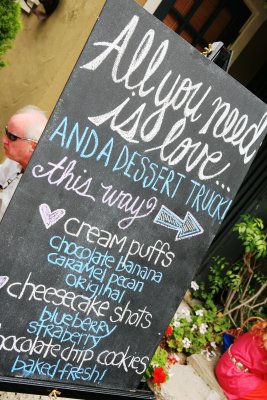 All you need
is love...
AND A DESSERT TRUCK!
this way?
cream puffs
chocolate banana
caramel pecan
original
cheesecake shots
blueberry
straberry
chocolate chip cookies
baked fresh!